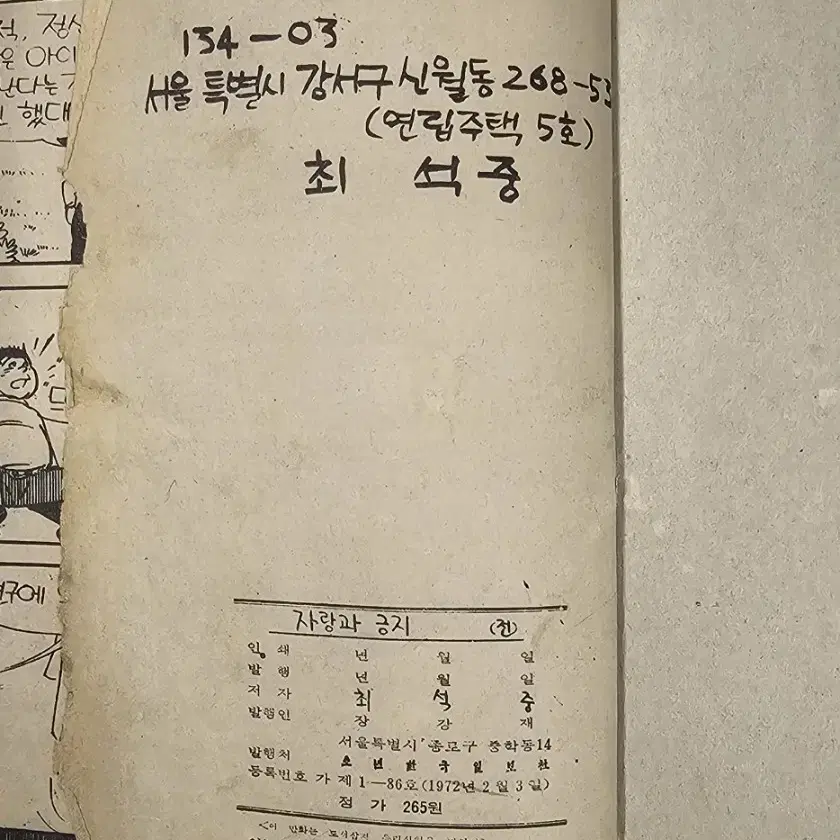 134-03
서울특별시 강서구 신월동 268-53
(연립주택 5호)
최 석 중
자랑과 긍지 (전)
인 쇄 년 월 일
발 행 년 월 일
저 자 최 석 중
발행인 장 강 재
서울특별시 종로구 중학동14
발행처 소년한국일보社
등록번호 가 제 1—86호 (1972년 2월 3일)
정 가 265원
<이 만화는
적, 정
은 아이
난다는
했대
구에